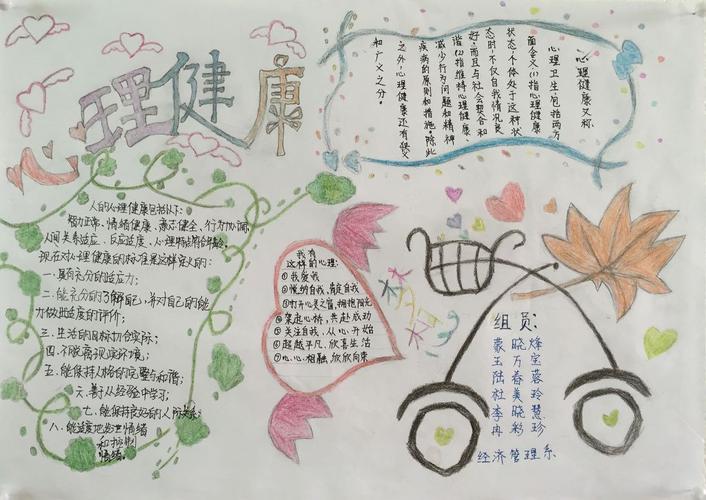 心理健康
心理健康又称
心理卫生包括两方
面含义(1)指心理健康
状态,个体处于这种状
态时,不仅自我情况良
好,而且与社会契合和
谐(2)指维持心理健康、
减少行为问题和精神
疾病的原则和措施,除此
之外,心理健康还有狭
和广义之分。
人的心理健康包括以下:
智力正常、情绪健康、意志健全、行为协调、
人间关系适应、反应适度、心理特点符合年龄。
现在对心理健康的标准是这样定义的:
一.具有充分的适应力;
二.能充分的了解自己,并对自己的能
力做出适度的评价;
三.生活的目标切合实际;
四.不脱离现实环境;
五.能保持人格的完整与和谐;
六.善于从经验中学习;
七.能保持良好的人际关系;
八.能适度地发泄情绪
和控制
情绪。
我有
这样的心理:
①我爱我
②悦纳自我,肯定自我
③打开心灵之窗,拥抱阳光
④架起心桥,共赴成功
⑤关注自我,从心开始
⑥超越平凡,欣喜生活
⑦心心相融,欣欣向荣
组员:
蒙晓烽
玉万宝
陆春蓉
杜美玲
李晓慧
冉彩珍
经济管理系